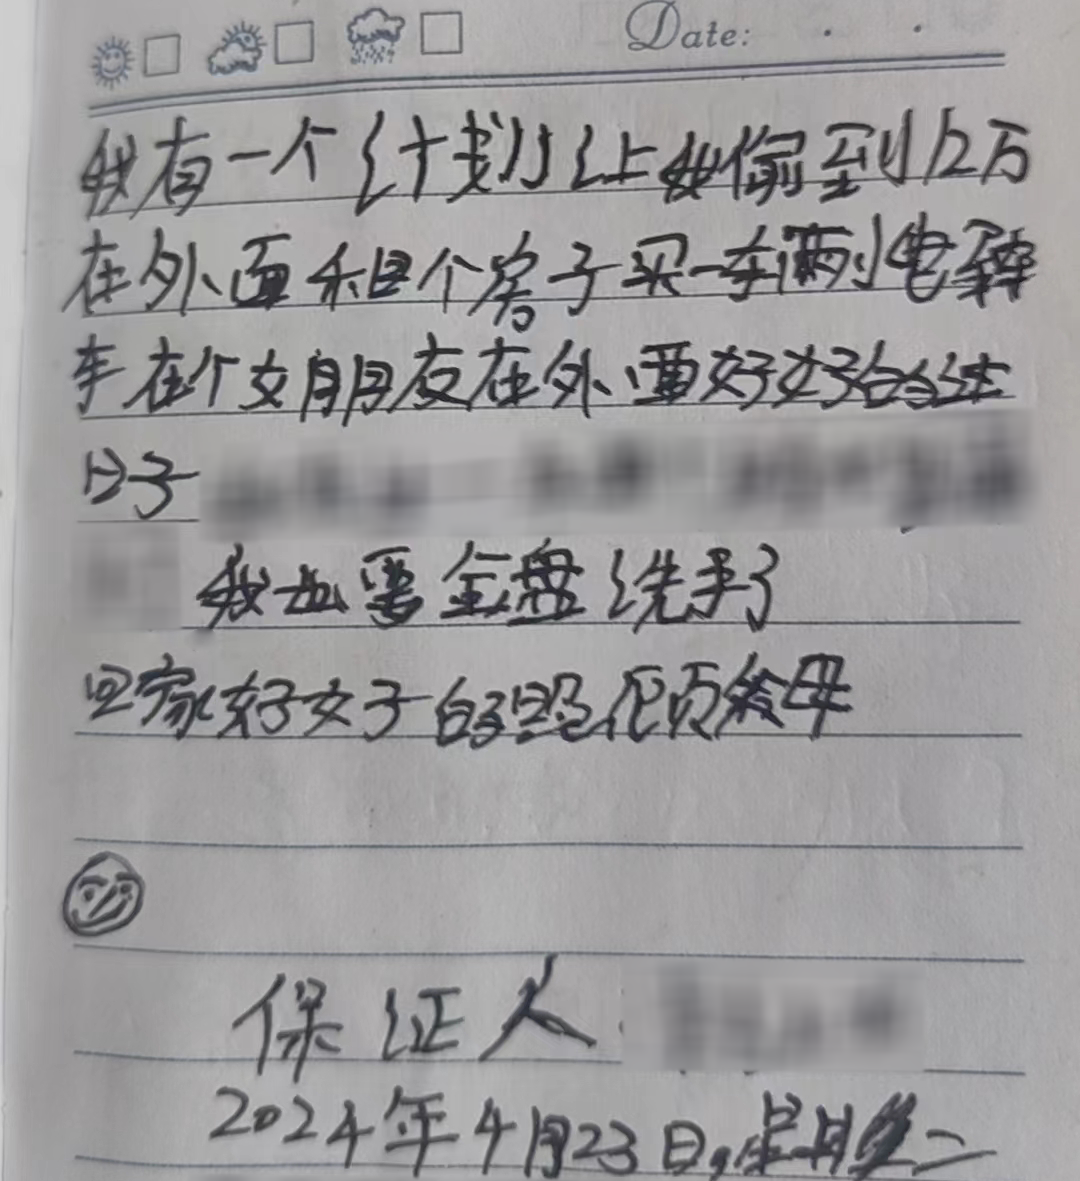 Date:
我有一个计划让我偷到12万
在外面租个房子买一车辆小电
车在个女朋友在外面好好台过
日子
我也要金盘洗手了
回家好好子的照顾父母
保证人
2024年4月23日,星期二